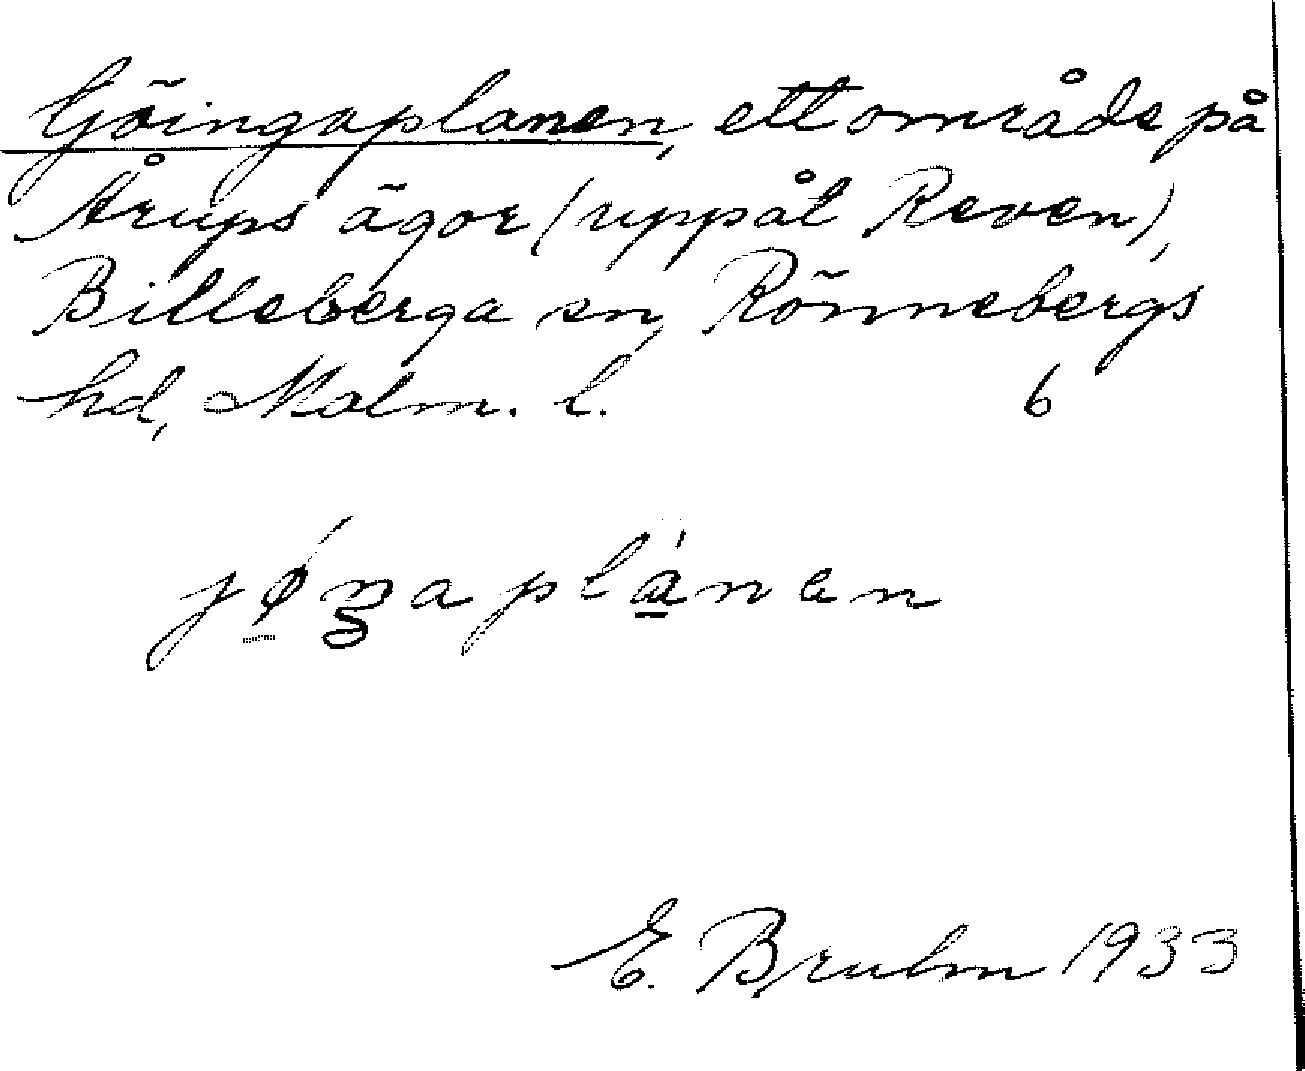 Göingaplanen, ett område på
Årups ägor (uppåt Reven),
Billeberga sn, Rönnebergs
hd, Malm. l. 6
jǿ̱ŋaplá̱nen
E. Bruhn 1933